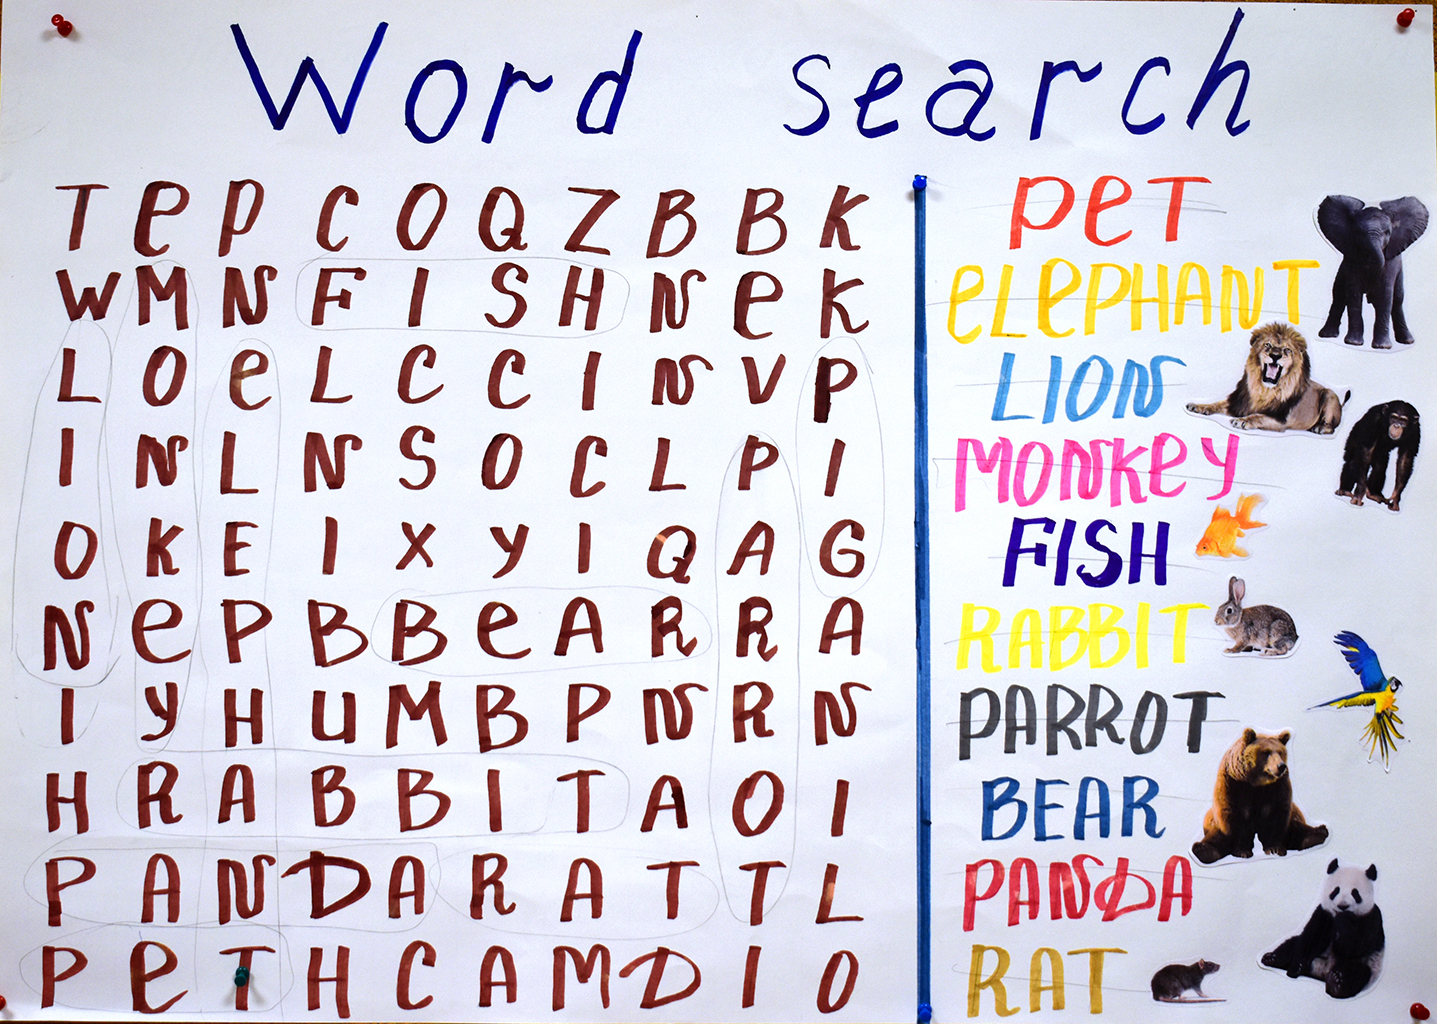 Word search
T e P C O Q Z B B K
W M N F I S H N e K
L O e L C C I N V P
I N L N S O C L P I
O K E I X Y I Q A G
N e P B B e A R R A
I Y H U M B P N R N
H R A B B I T A O I
P A N D A R A T T L
P e T H C A M D I O
PeT
eLePHANT
LION
MONKeY
FISH
RABBIT
PARROT
BEAR
PANDA
RAT